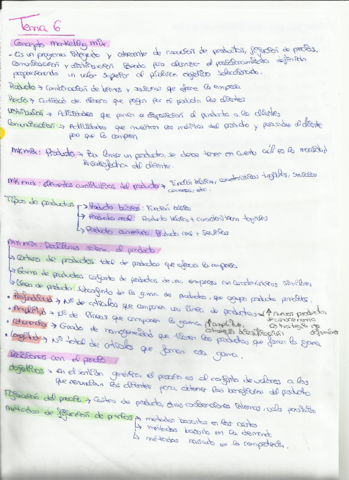 Tema 6
Concepto marketing mix.
- Es un programa integrado y coherente de creación de productos, fijación de precios,
comunicación y distribución para alcanzar el posicionamiento definido
proporcionando un valor superior al público objetivo seleccionado.
Producto → Combinación de bienes y servicios que ofrece la empresa
Precio → Cantidad de dinero que pagan por el producto los clientes
Distribución → Actividades que ponen a disposición el producto a los clientes,
Comunicación → Actividades que muestran los méritos del producto y persuaden al cliente
para que lo compren.
MK mix: Producto → Para un producto se debe tener en cuenta cual es la necesidad
del cliente.
MK mix: Elementos constitutivos del producto → Función básica, características tangibles, Servicios
Tipos de productos → Producto básico: Función básica
→ Producto real: Producto básico + características tangibles
→ Producto aumentado: Producto real + Servicios
MK mix: Decisiones sobre el producto
→ Cartera de productos: total de productos que ofrece la empresa
→ Gama de productos: conjunto de productos de una empresa con características similares
→ Línea de producto: Subconjunto de la gama de productos, que agrupa productos
→ Profundidad → Nº de artículos que componen una línea de productos → nuevos productos
→ Amplitud → Nº de líneas que componen la gama. ↑ amplitud,
→ Coherencia → Grado de homogeneidad que tienen los productos que forman la gama
→ Longitud → Nº total de artículos que forman esa gama.
Decisiones con el precio
Objetivos → en el sentido genérico el precio es el conjunto de valores a los
que renuncian los clientes para obtener los beneficios del producto
Fijación del precio → Costes de producto, otras consideraciones internas, valor percibido
métodos de fijación de precios → métodos basados en los costes
→ métodos basados en la demanda
→ métodos basados en la competencia.